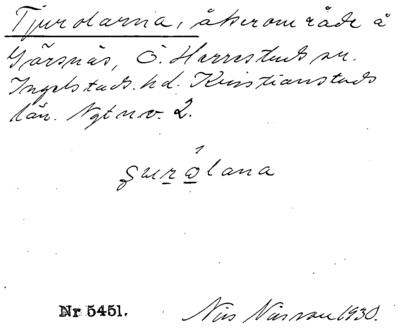 Tjurolarna, åkerområde å
Gärsnäs, Ö. Herrestads sn.
Ingelstads hd. Kristianstads
län. Ngt nv. 2.
Nr 5451. Nils Nilsson 1930.